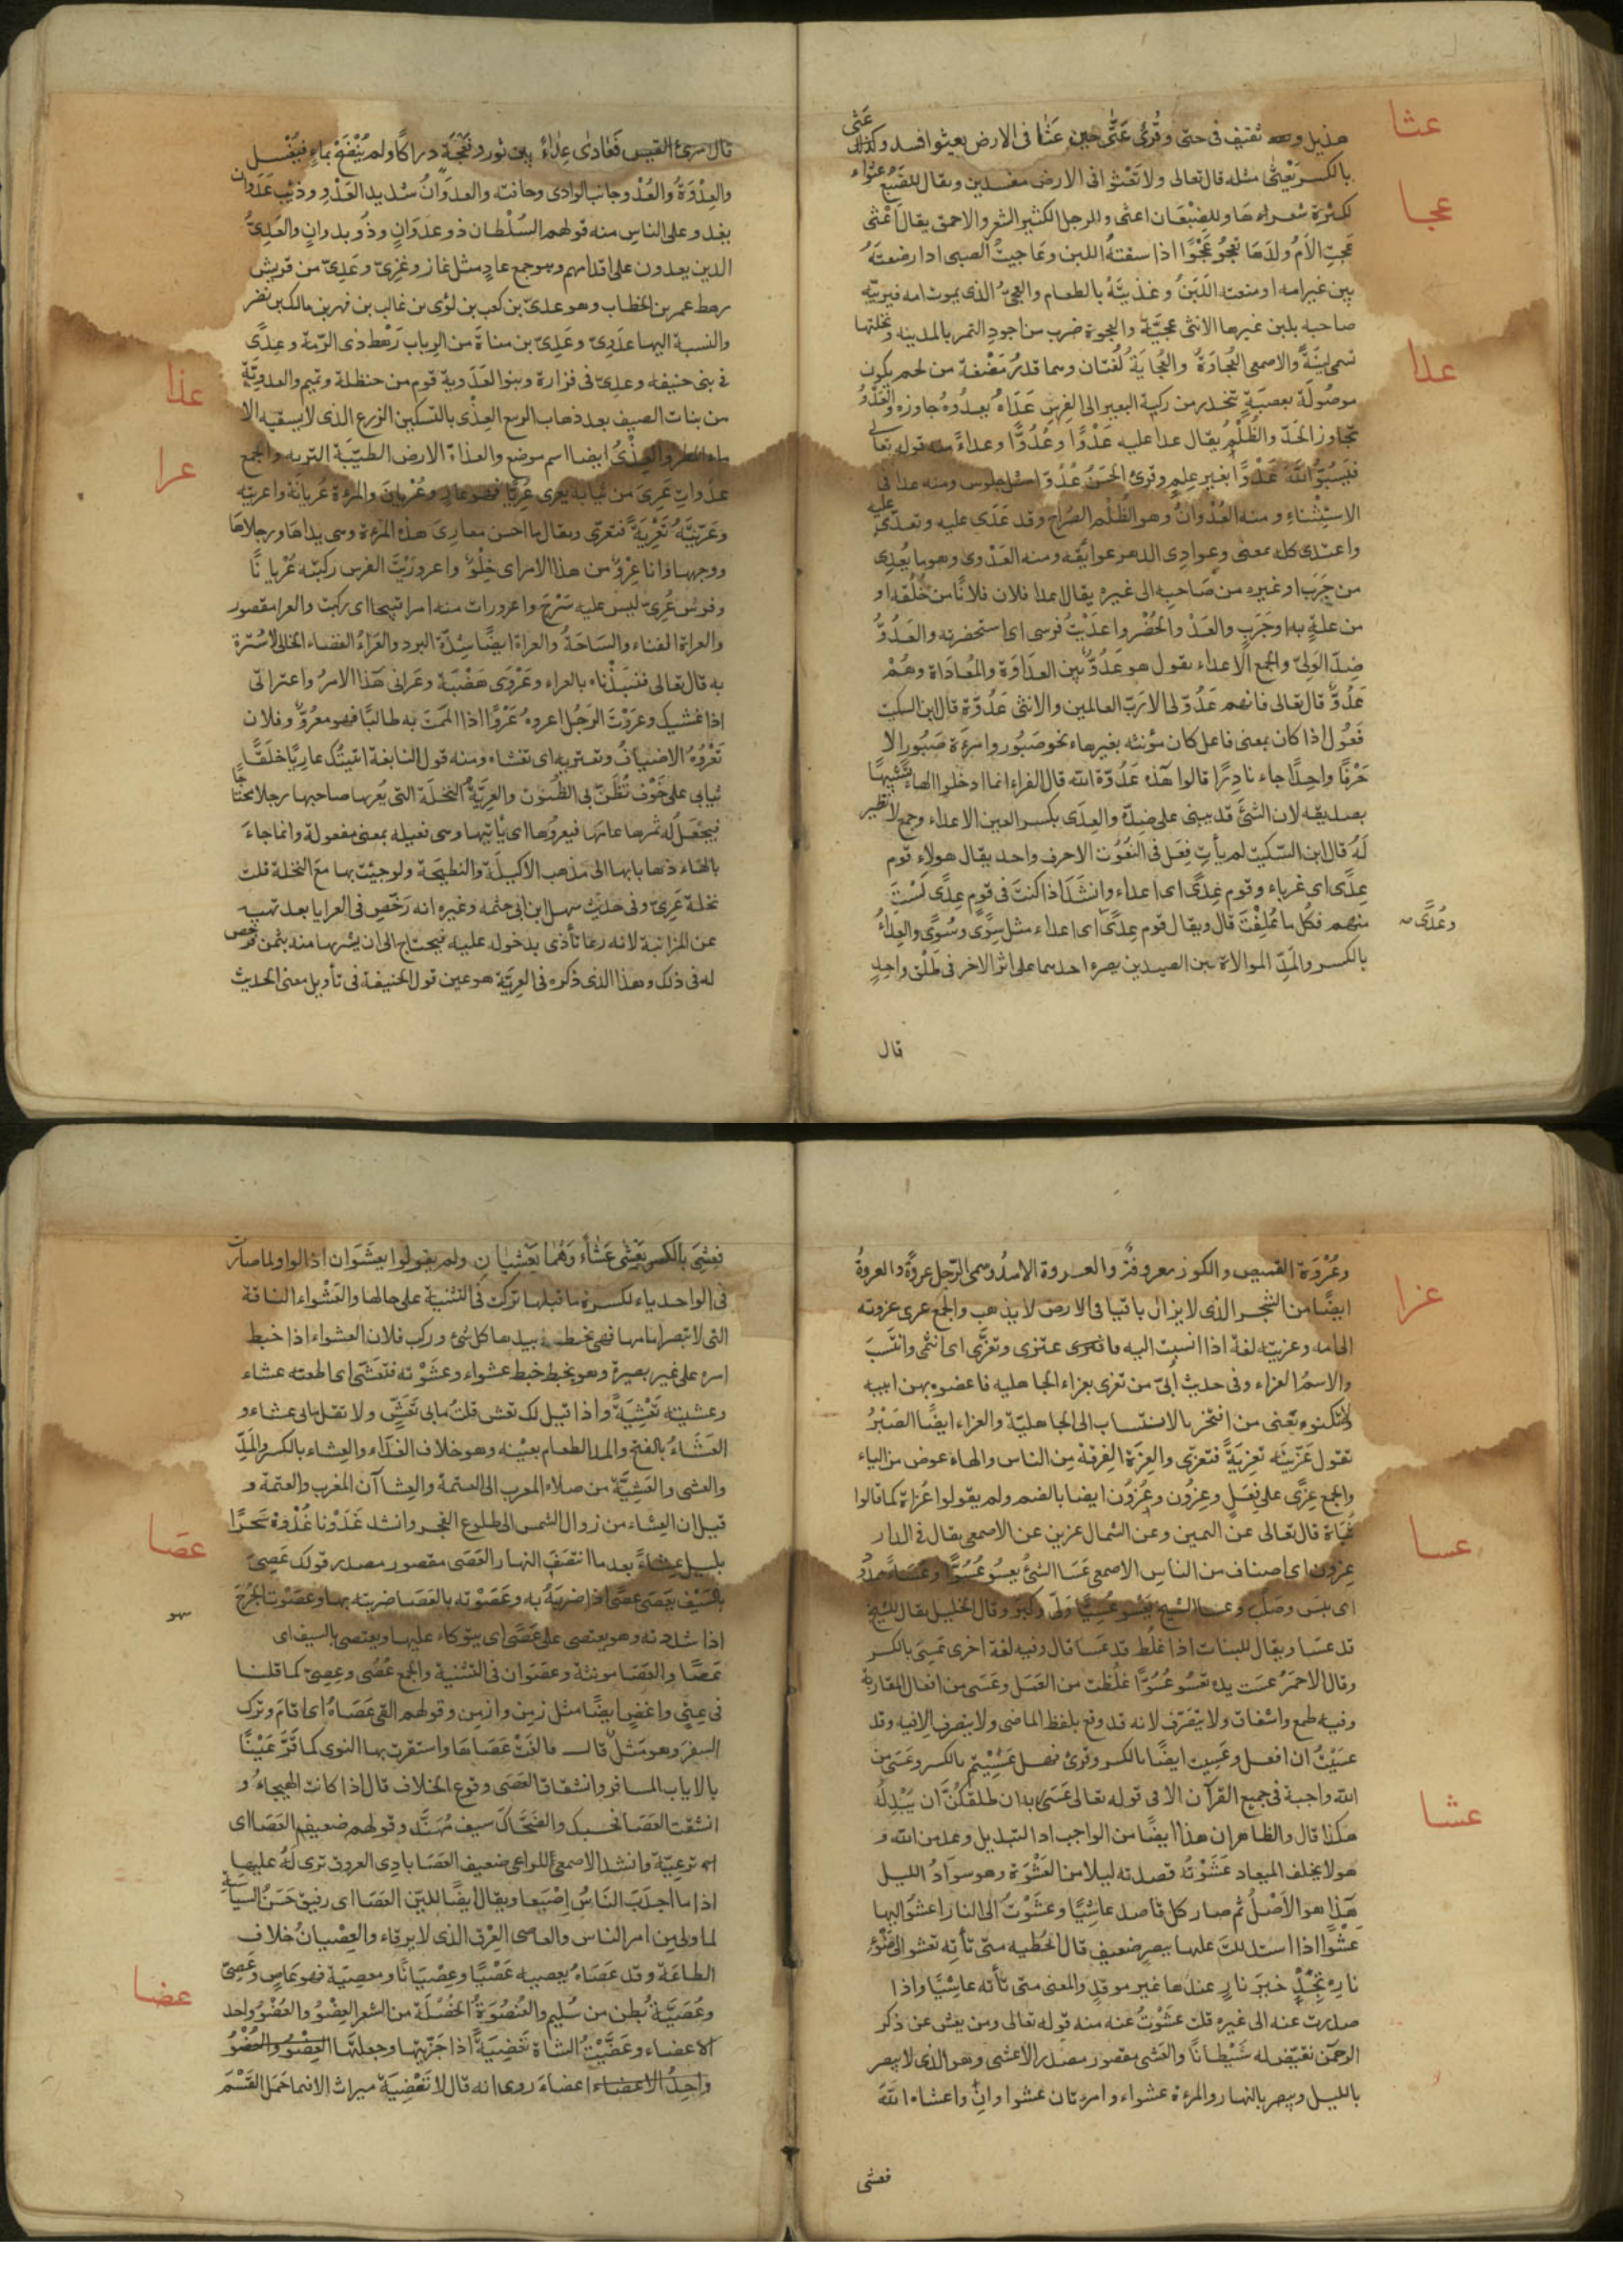 عثا
هذيل وثقيف فى حتى وقُرِئَ عَتَّى حين عَثَا فى الارض يعثوا افسد وكذلك عَثى
بالكسر يَعْثى مثله قال تعالى ولا تَعْثوا فى الارض مفسدين ويقال للضَبُع عثواء
لكثرة شعرها وللضِبْعَان اعثى وللرجل الكثير الشعر والاحمق يقال اَعْثى
عجا
عَجتِ الاُم ولدَها تعجُو عَجْوًا اذا سقتهُ اللبن وعَاجيتُ الصبى اذا رضعتَهُ
بلبن غير امه او منعته اللَبَنَ وغذيتَهُ بالطعام والعَجِىّ الذى يموت امه فيربّيه
صاحبه بلبن غيرها الانثى عجيّة والعجوة ضرب من اجود التمر بالمدينه ونخلتها
تسمى لينَةً والاصمعى العُجاوَةُ والعُجَايَةُ لُغتان وهما قدرُ مَضْغة من لحم يكون
عدا
موصُولَة بعصَبَةٍ تنحدر من ركبة البعير الى الفِرسِن عَدَاهُ يعدُوهُ جاوزه والعَدْوُ
تجاوز الحَدّ والظُلْمُ يقال عدا عليه عَدْوًا وعُدُوًّا وعداءً منه قوله تعالى
فيَسُبّوُا اللهَ عَدْوًا بغير علمٍ وقرئ الحَسَنُ عُدُوّا مثل جلوس ومنه عدا فى
الاستِثْناءِ ومنه العُدْوانُ وهو الظُلْم الصُراح وقد عَدَى عليه وتعدّى عليه
واعتدى كله بمعنى وعوادِى الدهر عوايقه ومنه العَدْوى وهو ما يُعدِى
من جَرَب او غيره من صَاحبه الى غيره يقال اعدا فلان فلانًا من خُلُقه او
من علةٍ به او جَرَبٍ والعَدْ والحُضْر واعدَيْتُ فرسى اى استحضرته والعَدُوُّ
ضِدّ الوَلِىّ والجمع الاعداء يقول هو عَدُوٌّ بَيِن العدَاوَة والمُعَادَاة وهُمْ
عَدُوٌّ قال تعالى فانهم عَدُوٌّ لى الا رَبّ العالمين والانثى عَدُوّة قال ابن السكيت
فَعُول اذا كان بمعنى فاعل كان مؤنثه بغير هاء نحو صَبُور وامرءَة صَبُور الا
حَرْفًا واحِدًا جاء نادِرًا قالوا هذه عَدُوّة الله قال الفراء انما ادخلوا الهاء تشبِيهًا
بصديقه لان الشئَ قد يبنى على ضِدّه والعِدَى بكسر العين الاعداء وجمع لا نظير
لَهُ قال ابن السّكيت لم يأت فِعَل فى النُعُوت الا حرف واحد يقال هولاء قوم
عِدًى اى غرباء وقوم عِدًى اى اعداء وانشَدَ اذا كنتَ فى قومٍ عِدًى لَسْتَ
منهم فكُل ما عُلِفْتَ قال ويقال قوم عِدًى اى اعداء مثل سِوًى وسُوًى والعِداءُ
وعُدًى صـ
بالكسر والمَدّ الموالاة بين الصيدين بصرع احدهما على اثر الاخر فى طَلْق واحِدٍ
قال
قال امرئ القيس فَعَادَى عِدَاءً بين ثور ونعْجَة دراكًا ولم يُنْضَحْ بماءٍ فيُغْسل
والعِدْوَةُ والعُدْوة جانب الوادى وحافته والعدَوَانُ شديد العَدْو وذئب عَدَوان
يغدو على الناس منه قولهم السُلْطان ذو عدَوَانٍ وذُو بدوانٍ والعَدِىُّ
الذين يعدون على اقدامهم وهو جمع عادٍ مثل غاز وغَزِىّ وعَدِىّ من قريش
رهط عمر بن الخطاب وهو عدىّ بن كعب بن لؤى بن غالب بن فهر بن مالك بن نضر
والنسبة اليها عدَوِىّ وعَدِىّ بن مناةَ من الرِباب رَهْط ذى الرُمّة وعِدًى
فى بنى حنيفه وعدِىّ فى فزارة وبنوا العَدَوِية قوم من حنظلة وتميم والعدوِيَّةُ
عذا
من بنات الصيف بعد ذهاب الربيع العِذْى بالتسكين الزرع الذى لا يسقيه الا
ماء المطر والعِذْىُ ايضا اسم موضع والعذاةُ الارض الطيّبَة التربه والجمع
عرا
عذَواتٍ عَرِىَ من ثيابه يعرى عُرِيًّا فهو عارٍ وعُرْيان والمرءة عُريانة واعريته
وعَرّيْتَهُ تَعْرِيَةً فتعرّى ويقال ما احسن معارِىَ هذه المرءة وهى يداها ورجلاها
ووجهها وانا عِرْوٌ من هذا الامر اى خِلْوٌ واعروَرَيْتُ الفرس ركبتُه عُرْيانًا
وفرس عُرِىّ ليس عليه سَرْج واعرورات منه امرا قبيحا اى ركبت والعرا مقصور
والعراة الفناء والسَاحَةُ والعراة ايضًا شِدّة البرد والعَرَاءُ الفضاء الخالى لا سُترة
به قال تعالى فنَبَذْناه بالعراء وعَرْوَى هَضْبَة وعَرانى هَذا الامرُ واعترانى
اذا غشيك وعرَوْتَ الرَجُل اعروهُ عَرْوًا اذا المَمْتَ به طالبًا فهو معرُوٌّ وفلان
تَعْرُوُهُ الاضيافُ وتعتريه اى تغشاه ومنه قول النابغة اتيتُك عاريًا خلَقًا
ثيابى على خَوْف تُظَنّ بى الظُنون والعرِيَّةُ النخلَة التى يُعريها صاحبها رجلا محتاجًا
فيجْعَلُ له ثمرها عامَها فيعروُها اى يأتيها وهى فعيله بمعنى مفعولة وانما جاءَ
بالهاء ذهابا بها الى مذهب الاكيلَة والنطيحَة ولو جيئت بها مع النخلة قلت
نخلة عَرِىّ وفى حديث سهل ابن ابى حثمه وغيره انه رَخّص فى العرايا بعد نهيه
عن المزابنة لانه ربما تأذى بدخوله عليه فيحتاج الى ان يشريها منه بثمن فرخص
له فى ذلك وهذا الذى ذكره فى العرِيّة هو عين قول الحنيفة فى تأويل معنى الحديث
وعُرْوَة القميص والكوز معروفةٌ والعروة الاسدُ وسمى الرّجل عروةً والعروةُ
ايضًا من الشجر الذى لا يزال باقيا فى الارض لا يذهب والجمع عرى عزوته
عزا
الى امه وعزيته لغة اذا انسبت اليه فاعتزى وتعزَّى اى انتمى وانتَسَبَ
والاسمُ العزاء وفى حديث اُبىّ من تعزى بعزاء الجاهليه فاعضوه بهن ابيه
ولا تكنوه يَعنى من افتخر بالانتساب الى الجاهليّة والعزاء ايضًا الصَبْرُ
تقول عَزّيتَه تعزِيَةً فتعزّى والعِزَة الفرقة مِن الناس والهاء عوض من الياء
والجمع عِزًى على فِعَلٍ وعِزُون وعُزُون ايضا بالضم ولم يقولوا عُزاة كما قالوا
ثُباة قال تعالى عن اليمين وعن الشمال عزين عن الاصمعى يقال فى الدار
عسا
عِزون اى اصناف من الناس الاصمعى عَسَا الشئُ يعسُو عُسُوًّا وعَسَاءً ممدوُ
اى يبس وصَلُب وعسا الشيخ يَعْسُو عُسِيًّا وَلّى وكَبِرَ وقال الخليل يقال للشيخ
قد عسَا ويقال للنبات اذا غلُظ قد عَسَا قال وفيه لغة اخرى عَسِىَ بالكسر
وقال الاحمَرُ عسَت يده تعسُو عُسُوًّا غلُظت من العَمَل وعَسَى من افعال المقاربة
وفيه طمع واشفاق ولا يتصَرّف لانه قد وقع بلفظ الماضى ولا يتصرف الا فيه وقد
عسَيْتُ ان افعل وعَسِيت ايضًا بالكسر وقرئ فهل عَسِيْتم بالكسر وعَسَى من
الله واجبة فى جميع القرآن الا فى قوله تعالى عَسَى ربه ان طلقكُنَّ ان يُبْدِلَهُ
هكذا قال والظاهر ان هذا ايضًا من الواجب اذ التبديل وعد من الله و
عشا
هو لا يخلف الميعاد عَشَوْتُه قصدته ليلا من العَشْوَة وهو سوَادُ الليل
هَذا هو الاَصْلُ ثم صار كل قاصد عاشِيًا وعشَوْتُ الى النار اعشُو اليها
عَشْوًا اذا استدللتَ عليها ببصرٍ ضعيف قال الحُطيه متى تأته تعشو الى ضَوْءِ
نارِه تجدْ خيرَ نارٍ عندها غير موقدٍ والمعنى متى تأته عاشِيًا واذا
صدرت عنه الى غيره قلت عشَوْتُ عنه منه قوله تعالى ومن يعش عن ذكر
الرحمَن نقيّض له شَيْطانًا والعَشى مقصور مصدر الاعْشى وهو الذى لا يبصر
بالليل ويبصر بالنهار والمرءة عشواء وامرءتان عشوا وانِ واعشاه اللهُ
فعشى
فعشِىَ بالكسر يَعْشى عَشًا وَهُما يَعْشِيان ولم يقولوا يعشَوَان اذ الواو لما صارت
فى الواحد ياء لكسرة ما قبلها تركت فى التثنية على حالها والعَشْواء الناقة
التى لا تبصر امامها فهى تخبط بيديها كل شئ وركب فلان العشواء اذا خبط
امره على غير بصيرة وهو يخبط خبط عشواء وعشَوْته فتَعَشّى اى اطعمته عشاء
وعشيته تَعْشِيَةً واذا قيل لك تعش قلتُ ما بى تَعَشٍّ ولا تقل ما بى عشاء و
العَشَاءُ بالفتح والمد الطعام بعينه وهو خلاف الغَدَاء والعِشاء بالكسر والمَدّ
والعشى والعَشِيَّة من صلاه المغرب الى العتمة والعِشاآن المغرب والعتمة و
قيل ان العِشاء من زوال الشمس الى طلوع الفجر وانشد غَدَوْنا غُدْوةً سَحَرًا
عصَا
بليل عِشاءً بعد ما انتصَفَ النهار العَصَى مقصور مصدر قولك عَصِىَ
بالسَيْف يَعْصَى عصًى اذا ضربَهُ به وعَصَوْته بالعَصَا ضربته بها وعصَوْت الجُرْحَ
سهو
اذا شددته وهو يعتصى على عَصًى اى يتوكاء عليها ويعتصى بالسيف اى
عَصًا والعَصَا مونثة وعصَوَان فى التثنية والجمع عُصِى وعِصِىّ كما قلنا
فى عِتِىّ واعْصٍ ايضًا مثل زمِن وازمِن وقولهم القى عَصَاهُ اى اقامَ وترك
السفَرَ وهو مَثَلٌ قال فالقَتْ عَصَاهَا واستقرت بها النوى كما قَرّ عَيْنًا
بالاياب المسافر وانشقاق العَصَى وقوع الخلاف قال اذا كانت الهيجاءُ و
انشقت العَصَا فحسبك والضَحَّاكَ سيف مُهَنَّد وقولهم ضعيف العَصَا اى
ترعِيّة وانشد الاصمعىُّ للراعى ضعيف العَصَا بادِى العروق ترى لَهُ عليها
اذا ما اجدَبَ النَاسُ اِصْبَعا ويقال ايضًا لليّن العَصَا اى رفيق حَسَن السياسَة
لما ولى من امر الناس والعاصى العِرْق الذى لا يرقاء والعِصْيانُ خلاف
الطاعَة وقد عَصَاهُ يعصيه عَصْيًا وعِصْيَانًا ومعصِيَة فهو عَاصٍ وعَصِىّ
عضا
وعُصَيَّةُ بُطن من سُليم والعُنصُوَةُ الخُصْلَة من الشعر العِضْوُ والعُضْوُ واحد
الاعضاء وعَضَّيْتُ الشاة تَعْضِيَةً اذا جَزّيتها وجعلتَها العِضْوُ والعُضْوُ
واحِدُ الاعضاء اعضاءَ روى انه قال لا تَعْضِيَةَ فى ميراث الا فيما حَمَل القَسْمَ